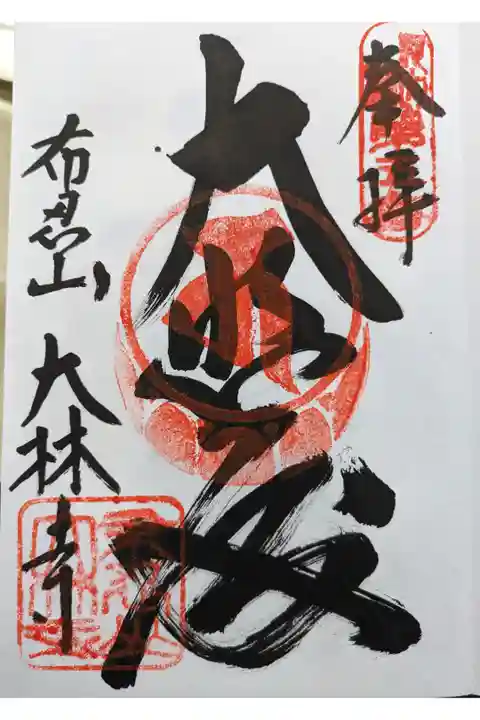 奉拝
大悲殿
布忍山 大林寺